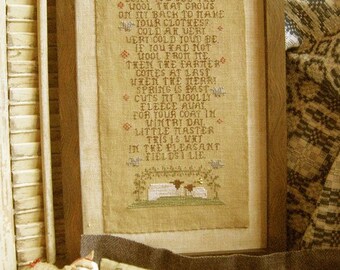 WOOL THAT GROWS
ON MY BACK TO MAKE
YOUR CLOTHES
COLD AH VERY
VERY COLD YOU'D BE
IF YOU HAD NOT
WOOL FROM ME
THEN THE FARMER
COMES AT LAST
WHEN THE MERRY
SPRING IS PAST
CUTS MY WOOLLY
FLEECE AWAY
FOR YOUR COAT IN
WINTRY DAY
LITTLE MASTER
THIS IS WHY
IN THE PLEASANT
FIELDS I LIE